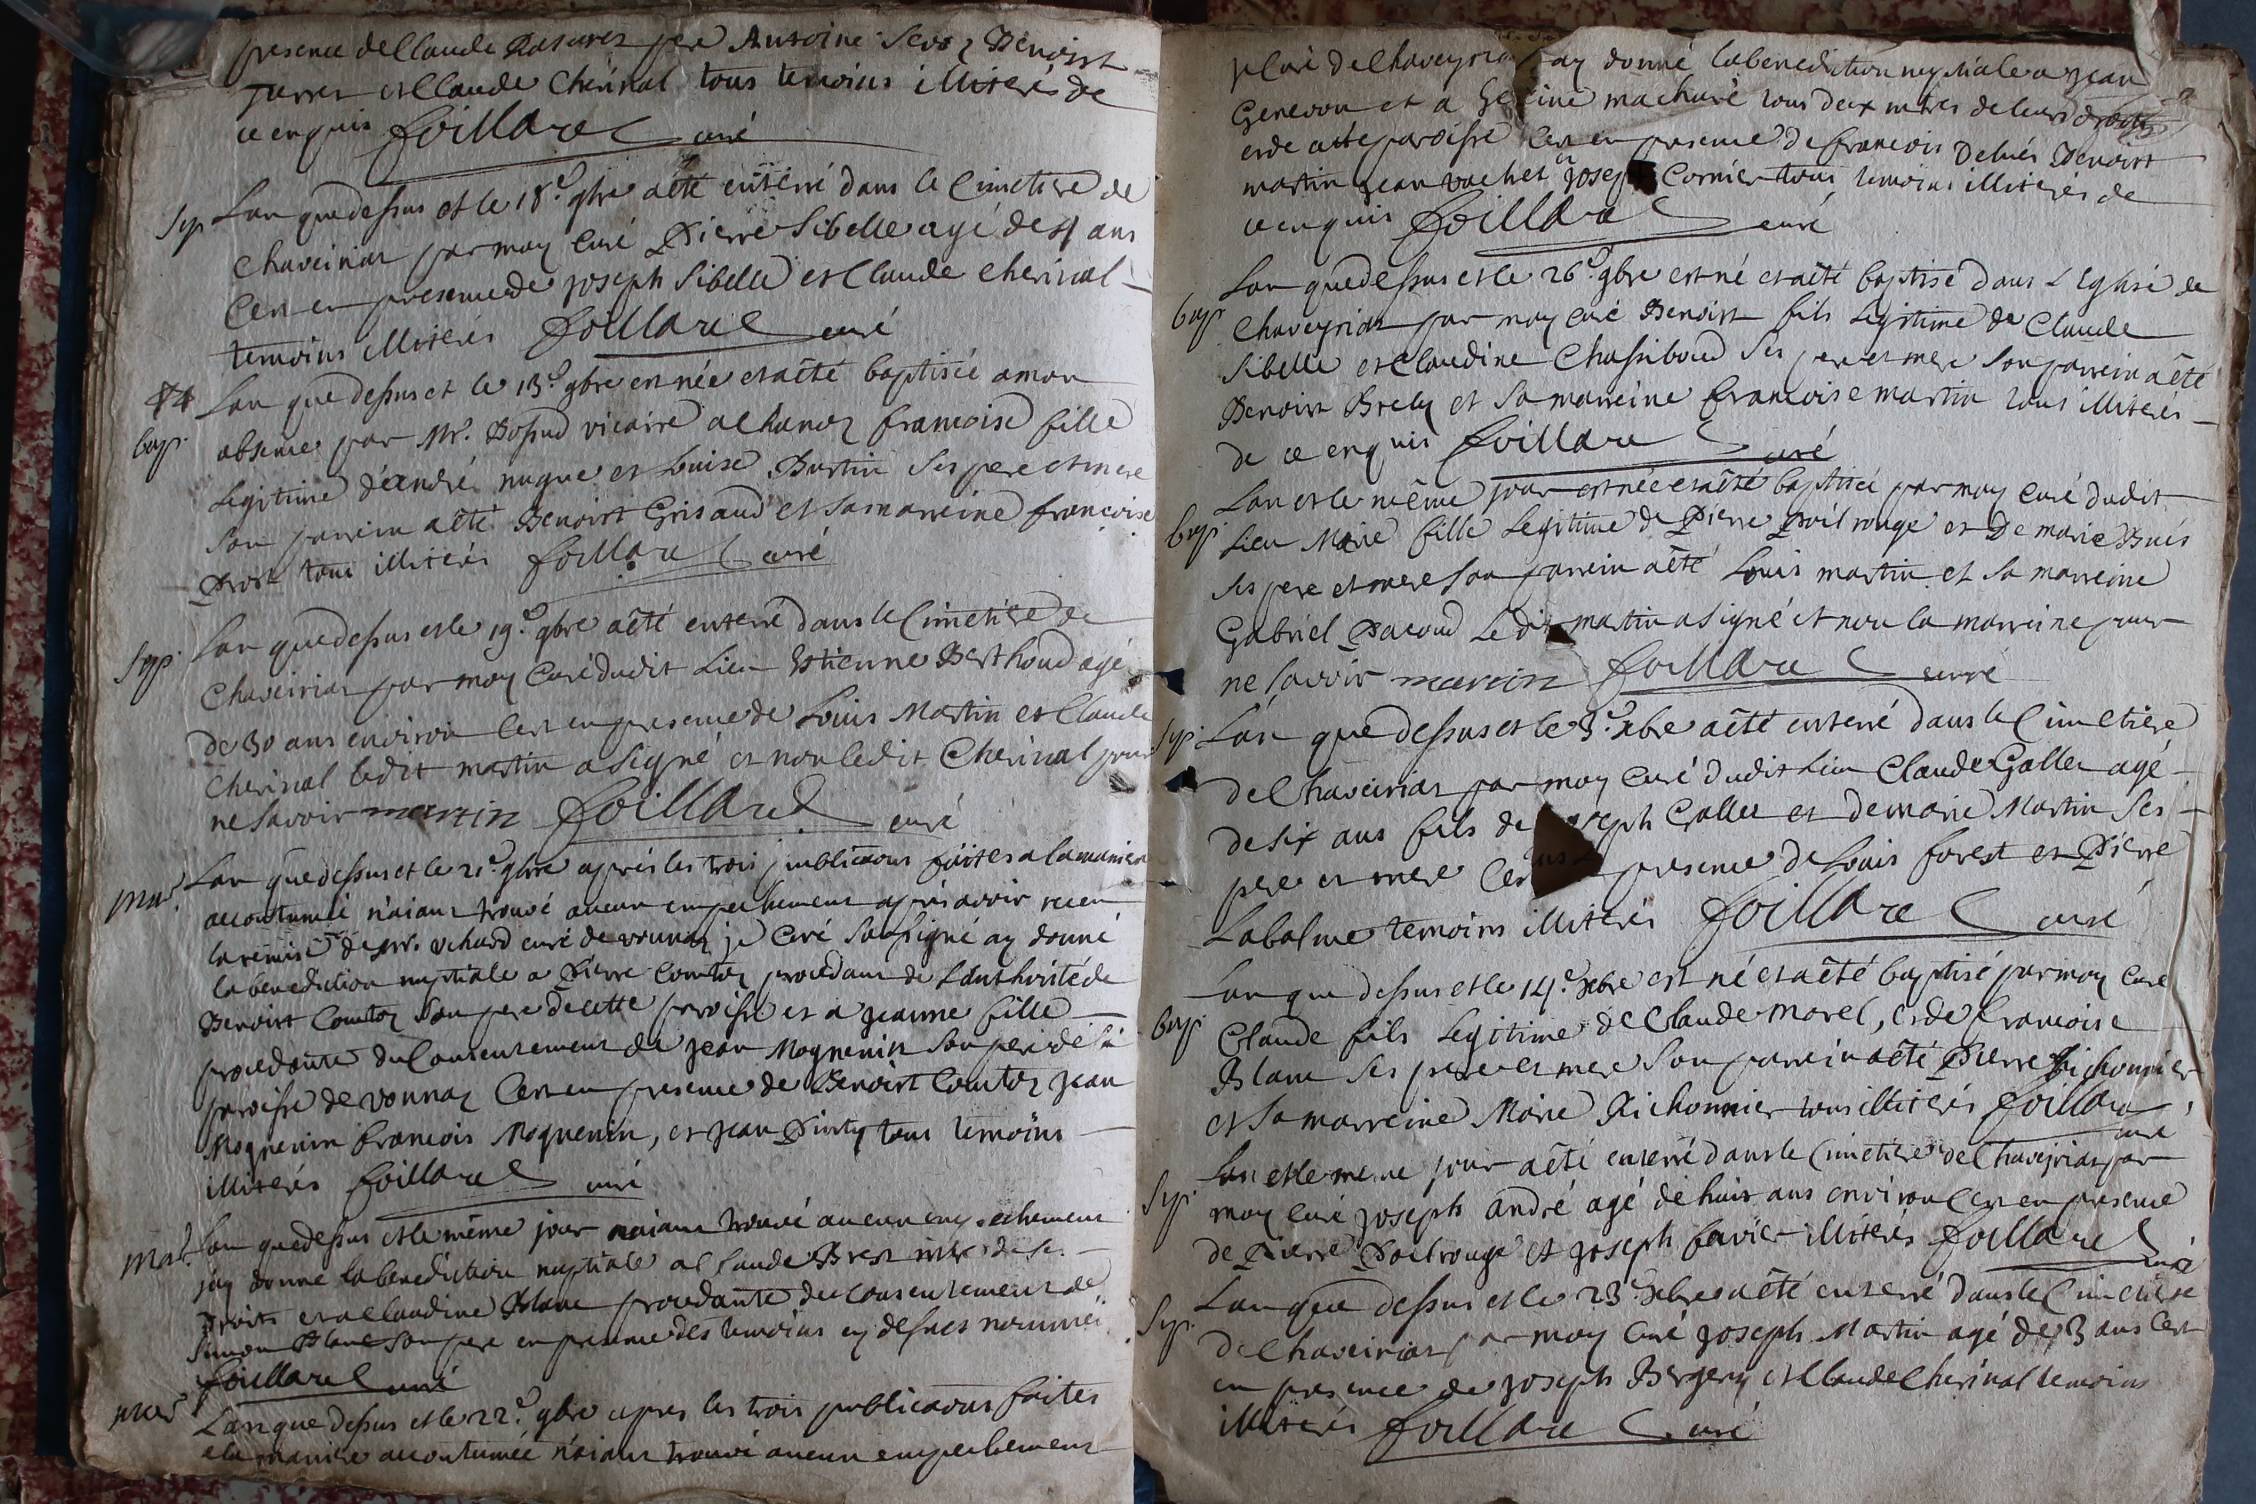 presence de Claude Rasurer pere Antoine Benoist
et Claude Cherinal tous temoins illiterés de
ce enquis foillard curé
Sep Lan que dessus et le 18e 9bre a été enterré dans le Cimetiere de
Chaveiriat par moy Curé Pierre Sibelle agé de 4 ans
Cert en presence de joseph Sibelle et Claude Cherinal
temoins illiterés foillard curé
bap. Lan que dessus et le 13e 9bre est née et a été baptisée a mon
absence par Mr. vicaire a francoise fille
Legitime d'andré nugue et Louise Burtin ses pere et mere
son parrein a été Benoist Grisaud et sa marreine francoise
Prost tous illiterés foillard curé
Sep. Lan que dessus et le 19e 9bre a été enterré dans le Cimetiere de
Chaveiriat par moy Curé dudit Lieu Estienne Berthoud agé
de 30 ans environ Cert en presence de Louis Martin et Claude
Cherinal ledit martin a signé et non ledit Cherinal pour
ne savoir martin foillard curé
mar. Lan que dessus et le 21e 9bre aprés les trois publicaons faites a la maniere
accoutumée n'aiant trouvé aucun empechement aprés avoir receu
la remise de Mr. curé de vonnaz je Curé soussigné ay donné
la benediction nuptiale a Pierre Comtoz procedant de L'authorité de
Benoist Comtoz son pere de cette paroisse et a jeanne fille
procedante du Consentement de jean Moguenin son pere de la
paroisse de vonnaz Cert en presence de Benoist Comtoz jean
Moguenin francois Moguenin, et jean tous temoins
illiterés foillard curé
mar. Lan que dessus et le même jour naiant trouvé aucun empechement
jay donné la benediction nuptiale a Claude Brest mtre de ses
droits et a Claudine Blanc procedante du consentement de
simon Blanc son pere en presence des temoins cy dessus nommés
foillard curé
mar Lan que dessus et le 22e 9bre apres les trois publicaons faites
a la maniere accoutumée n'aiant trouvé aucun empechement
je Curé de Chaveyriat ay donné la benediction nuptiale a jean
Genevon et a machuré tous deux mtres de leurs droits
et de cette paroisse Cert en presence de francois Benoist
martin jean vachet joseph Cornier tous temoins illiterés de
ce enquis foillard curé
bap Lan que dessus et le 26e 9bre est né et a été baptisé dans L'Eglise de
Chaveyriat par moy Curé Benoist fils Legitime de Claude
Sibelle et Claudine Chassiboud ses pere et mere son parrein a été
Benoist Brely et sa marreine francoise martin tous illiterés
de ce enquis foillard curé
bap. Lan et le même jour est née et a été baptisée par moy Curé dudit
Lieu Marie fille Legitime de Pierre Poil rouge et De marie Bués
ses pere et mere son parrein a été Louis martin et sa marreine
Gabriel Pacoud Le dit martin a signé et non la marreine pour
ne savoir martin foillard curé
Sep. Lan que dessus et le 3e xbre a été enterré dans le Cimetiere
de Chaveiriat par moy Curé dudit Lieu Claude Gallet agé
de six ans fils de joseph Gallet et de marie Martin ses
pere et mere presence de Louis forest et Pierre
Labalme temoins illiterés foillard curé
bap. Lan que dessus et le 14e xbre est né et a été baptisé par moy Curé
Claude fils Legitime de Claude morel, et de francoise
Blanc ses pere et mere son parrein a été Pierre Richonnier
et sa marreine Marie Richonnier tous illiterés foillard
curé
Sep. Lan et le meme jour a été enterré dans le Cimetiere de Chaveyriat par
moy Curé joseph andré agé de huit ans environ Cert en presence
de Pierre Poilrouge et joseph favier illiterés foillard
curé
Sep. Lan que dessus et le 23e xbre a été enterré dans le Cimetiere
de Chaveiriat par moy Curé joseph Martin agé de 3 ans Cert
en presence de joseph Bergery et Claude Cherinal temoins
illiterés foillard curé